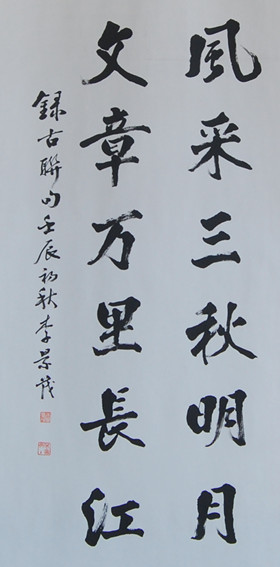 風采三秋明月
文章万里長江
録古聯句壬辰初秋李景茂